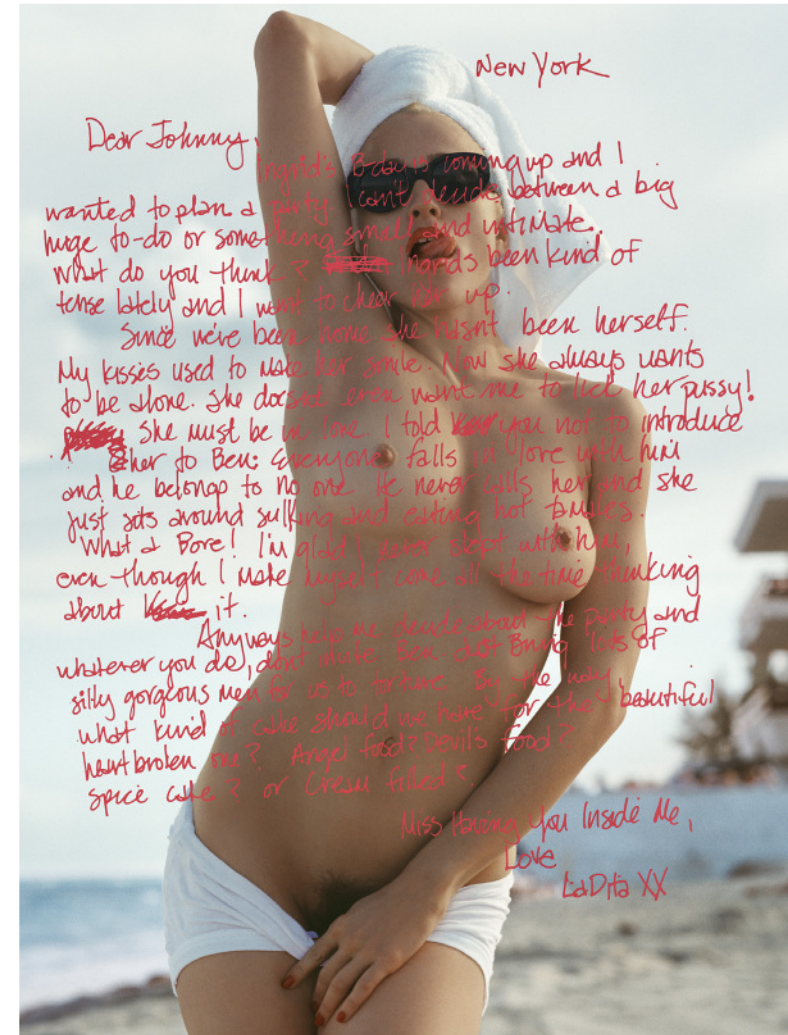 New York
Dear Johnny,
Ingrid's B-day is coming up and I
wanted to plan a party. I can't decide between a big
huge to-do or something small and intimate.
What do you think? Ingrid's been kind of
tense lately and I want to chear her up.
Since we've been home she hasn't been herself.
My kisses used to make her smile. Now she always wants
to be alone. She doesnt even want me to lick her pussy!
She must be in love. I told you not to introduce
her to Ben: Everyone falls in love with him
and he belongs to no one. He never calls her and she
just sits around sulking and eating hot tamales.
What a Bore! I'm glad I never slept with him,
even though I make myself come all the time thinking
about it.
Anyways help me decide about the party and
whatever you do, dont invite Ben. Just Bring lots of
silly gorgeous men for us to torture. By the way,
what kind of cake should we have for the beautiful
heartbroken one? Angel food? Devils food?
Spice cake? or Cream filled?
Miss Having You Inside Me,
Love
LaDita XX